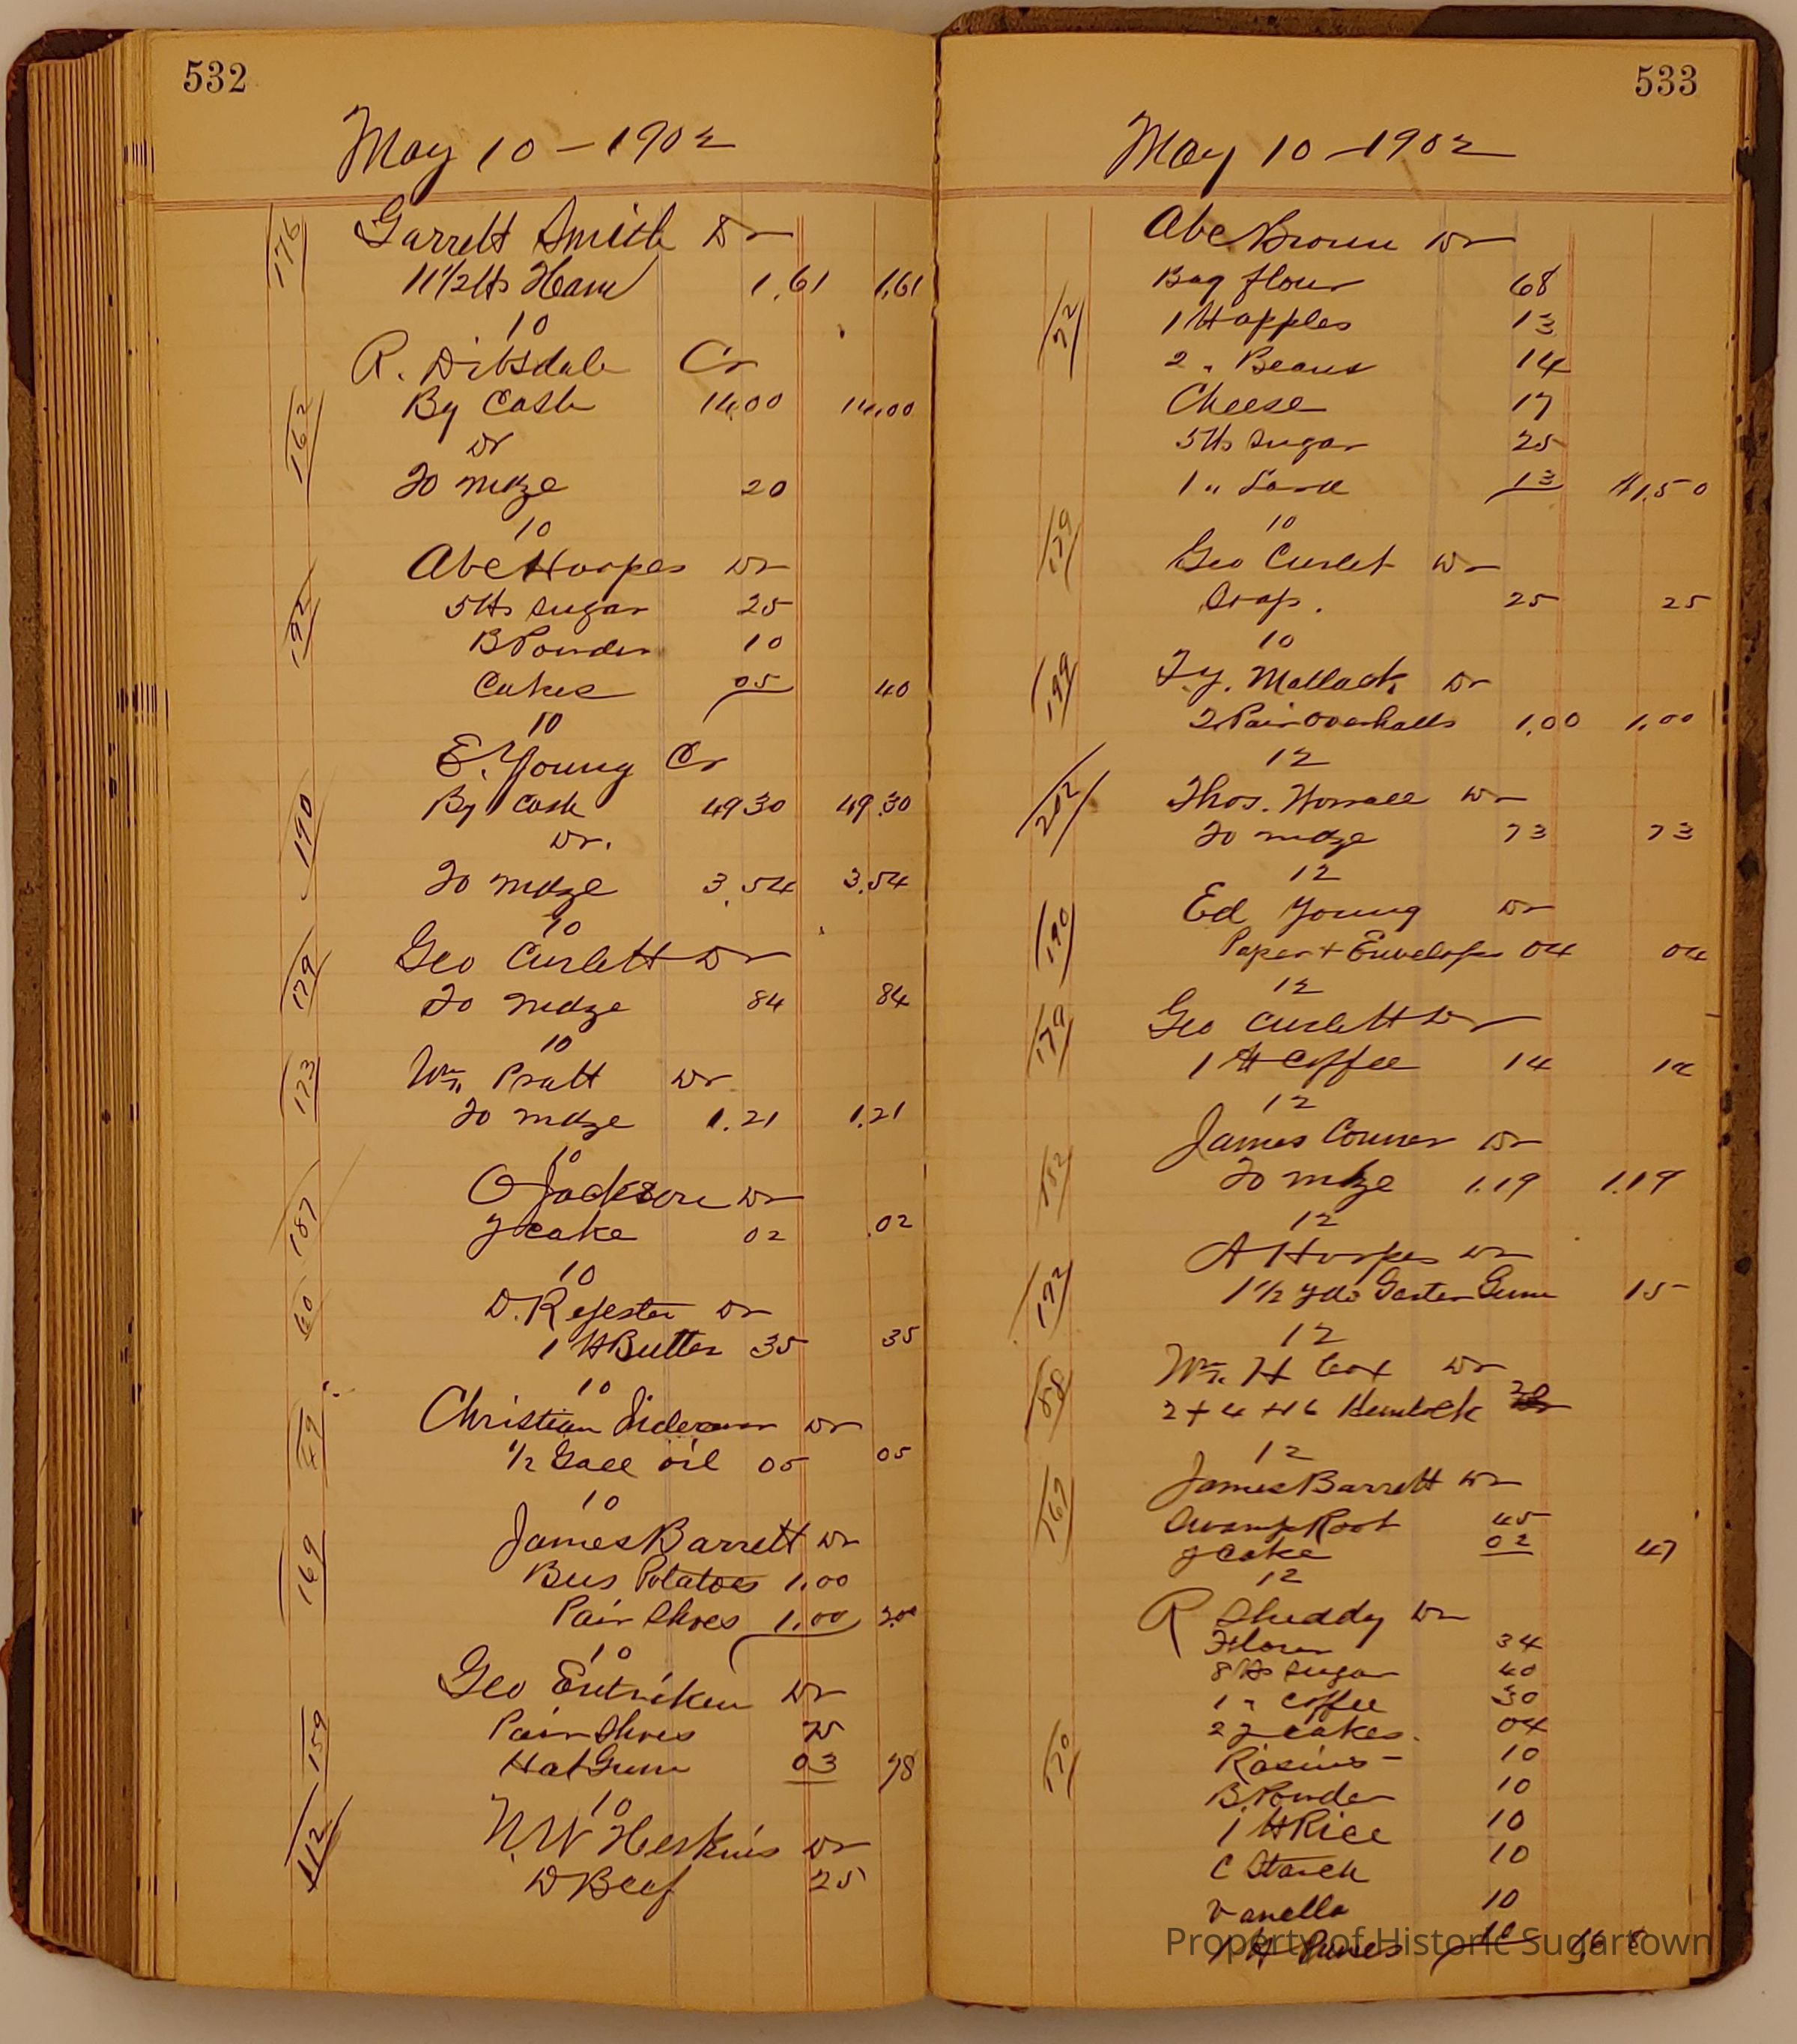 532
May 10 - 1902
176
Garrett Smith Dr
11 1/2 lb Ham 1.61 1.61
10
R. Dibsdale Cr
162
By Cash 14.00 14.00
Dr
To mdze 20
10
Abe Hoopes Dr
192
5 lb Sugar 25
B Powder 10
Cakes 05 40
10
E. Young Cr
190
By Cash 49 30 49.30
Dr.
To mdze 3.54 3.54
10
179
Geo Curlett Dr
To mdze 84 84
10
173
Wm Pratt Dr
To mdze 1.21 1.21
10
187
O Jackson Dr
y cake 02 .02
10
60
D. Regester Dr
1 lb Butter 35 35
10
49
Christian Dr
1/2 Gall oil 05 05
10
169
James Barrett Dr
Bus Potatoes 1.00
Pair Shoes 1.00 2.00
10
159
Geo Entriken Dr
Pair Shoes 75
Hat Gum 03 78
10
112
N. W Heskins Dr
D Beef 25
533
May 10 - 1902
Abe Brown Dr
72
Bag flour 68
1 lb apples 13
2 " Beans 14
Cheese 17
5 lb Sugar 25
1 " Lard 13 $1.50
10
179
Geo Curlet Dr
Soap. 25 25
10
199
Ty. Matlack Dr
2 Pair Overhalls 1.00 1.00
12
202
Thos. Worrall Dr
To mdze 73 73
12
190
Ed Young Dr
Paper + Envelopes 04 04
12
179
Geo Curlett Dr
1 lb Coffee 14 14
12
182
James Conner Dr
To mdze 1.19 1.19
12
192
A Hoopes Dr
1 1/2 yds Garter Gum 15
12
88
Wm. H Cox Dr
2 + 4 + 16 Hemlock 20
12
167
James Barrett Dr
Swamp Root 45
y Cake 02 47
12
R Sheddy Dr
Flour 34
8 lb Sugar 40
1 " Coffee 30
2 y cakes. 04
170
Rasins - 10
B. Powder 10
1 lb Rice 10
C Starch 10
Vanella 10
1 lb Prunes 10 16 8
Property of Historic Sugartown